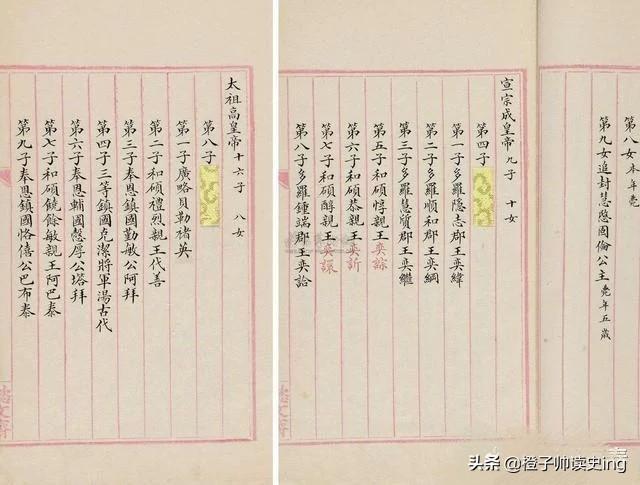 第八女 本年薨
第九女追封慧愍固倫公主 薨年五歲
宣宗成皇帝 九子 十女
第四子
第一子多羅隱志郡王奕緯
第二子多羅順和郡王奕綱
第三子多羅慧質郡王奕繼
第五子和碩惇親王奕誴
第六子和碩恭親王奕訢
第七子和碩醇親王奕譞
第八子多羅鍾端郡王奕詥
太祖高皇帝 十六子 八女
第八子
第一子廣略貝勒褚英
第二子和碩禮烈親王代善
第三子奉恩鎮國勤敏公阿拜
第四子三等鎮國克潔將軍湯古代
第六子奉恩輔國愨厚公塔拜
第七子和碩饒餘敏親王阿巴泰
第九子奉恩鎮國恪僖公巴布泰
頭条 @橙子帅读史ing